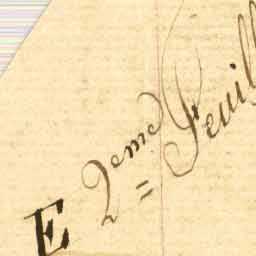 E 2eme Feuill